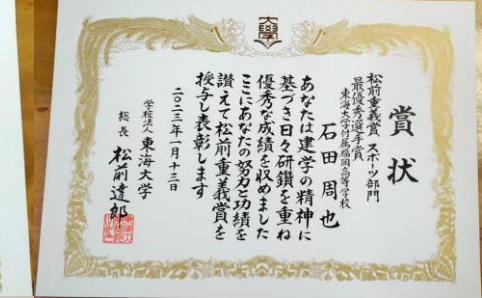 大學
賞状
松前重義賞 スポーツ部門
最優秀選手賞
東海大学付属福岡高等学校
石田周也
あなたは建学の精神に
基づき日々研鑽を重ね
優秀な成績を収めました
ここにあなたの努力と功績を
讃えて松前重義賞を
授与し表彰します
二〇二三年一月十三日
学校法人 東海大学
総長 松前達郎